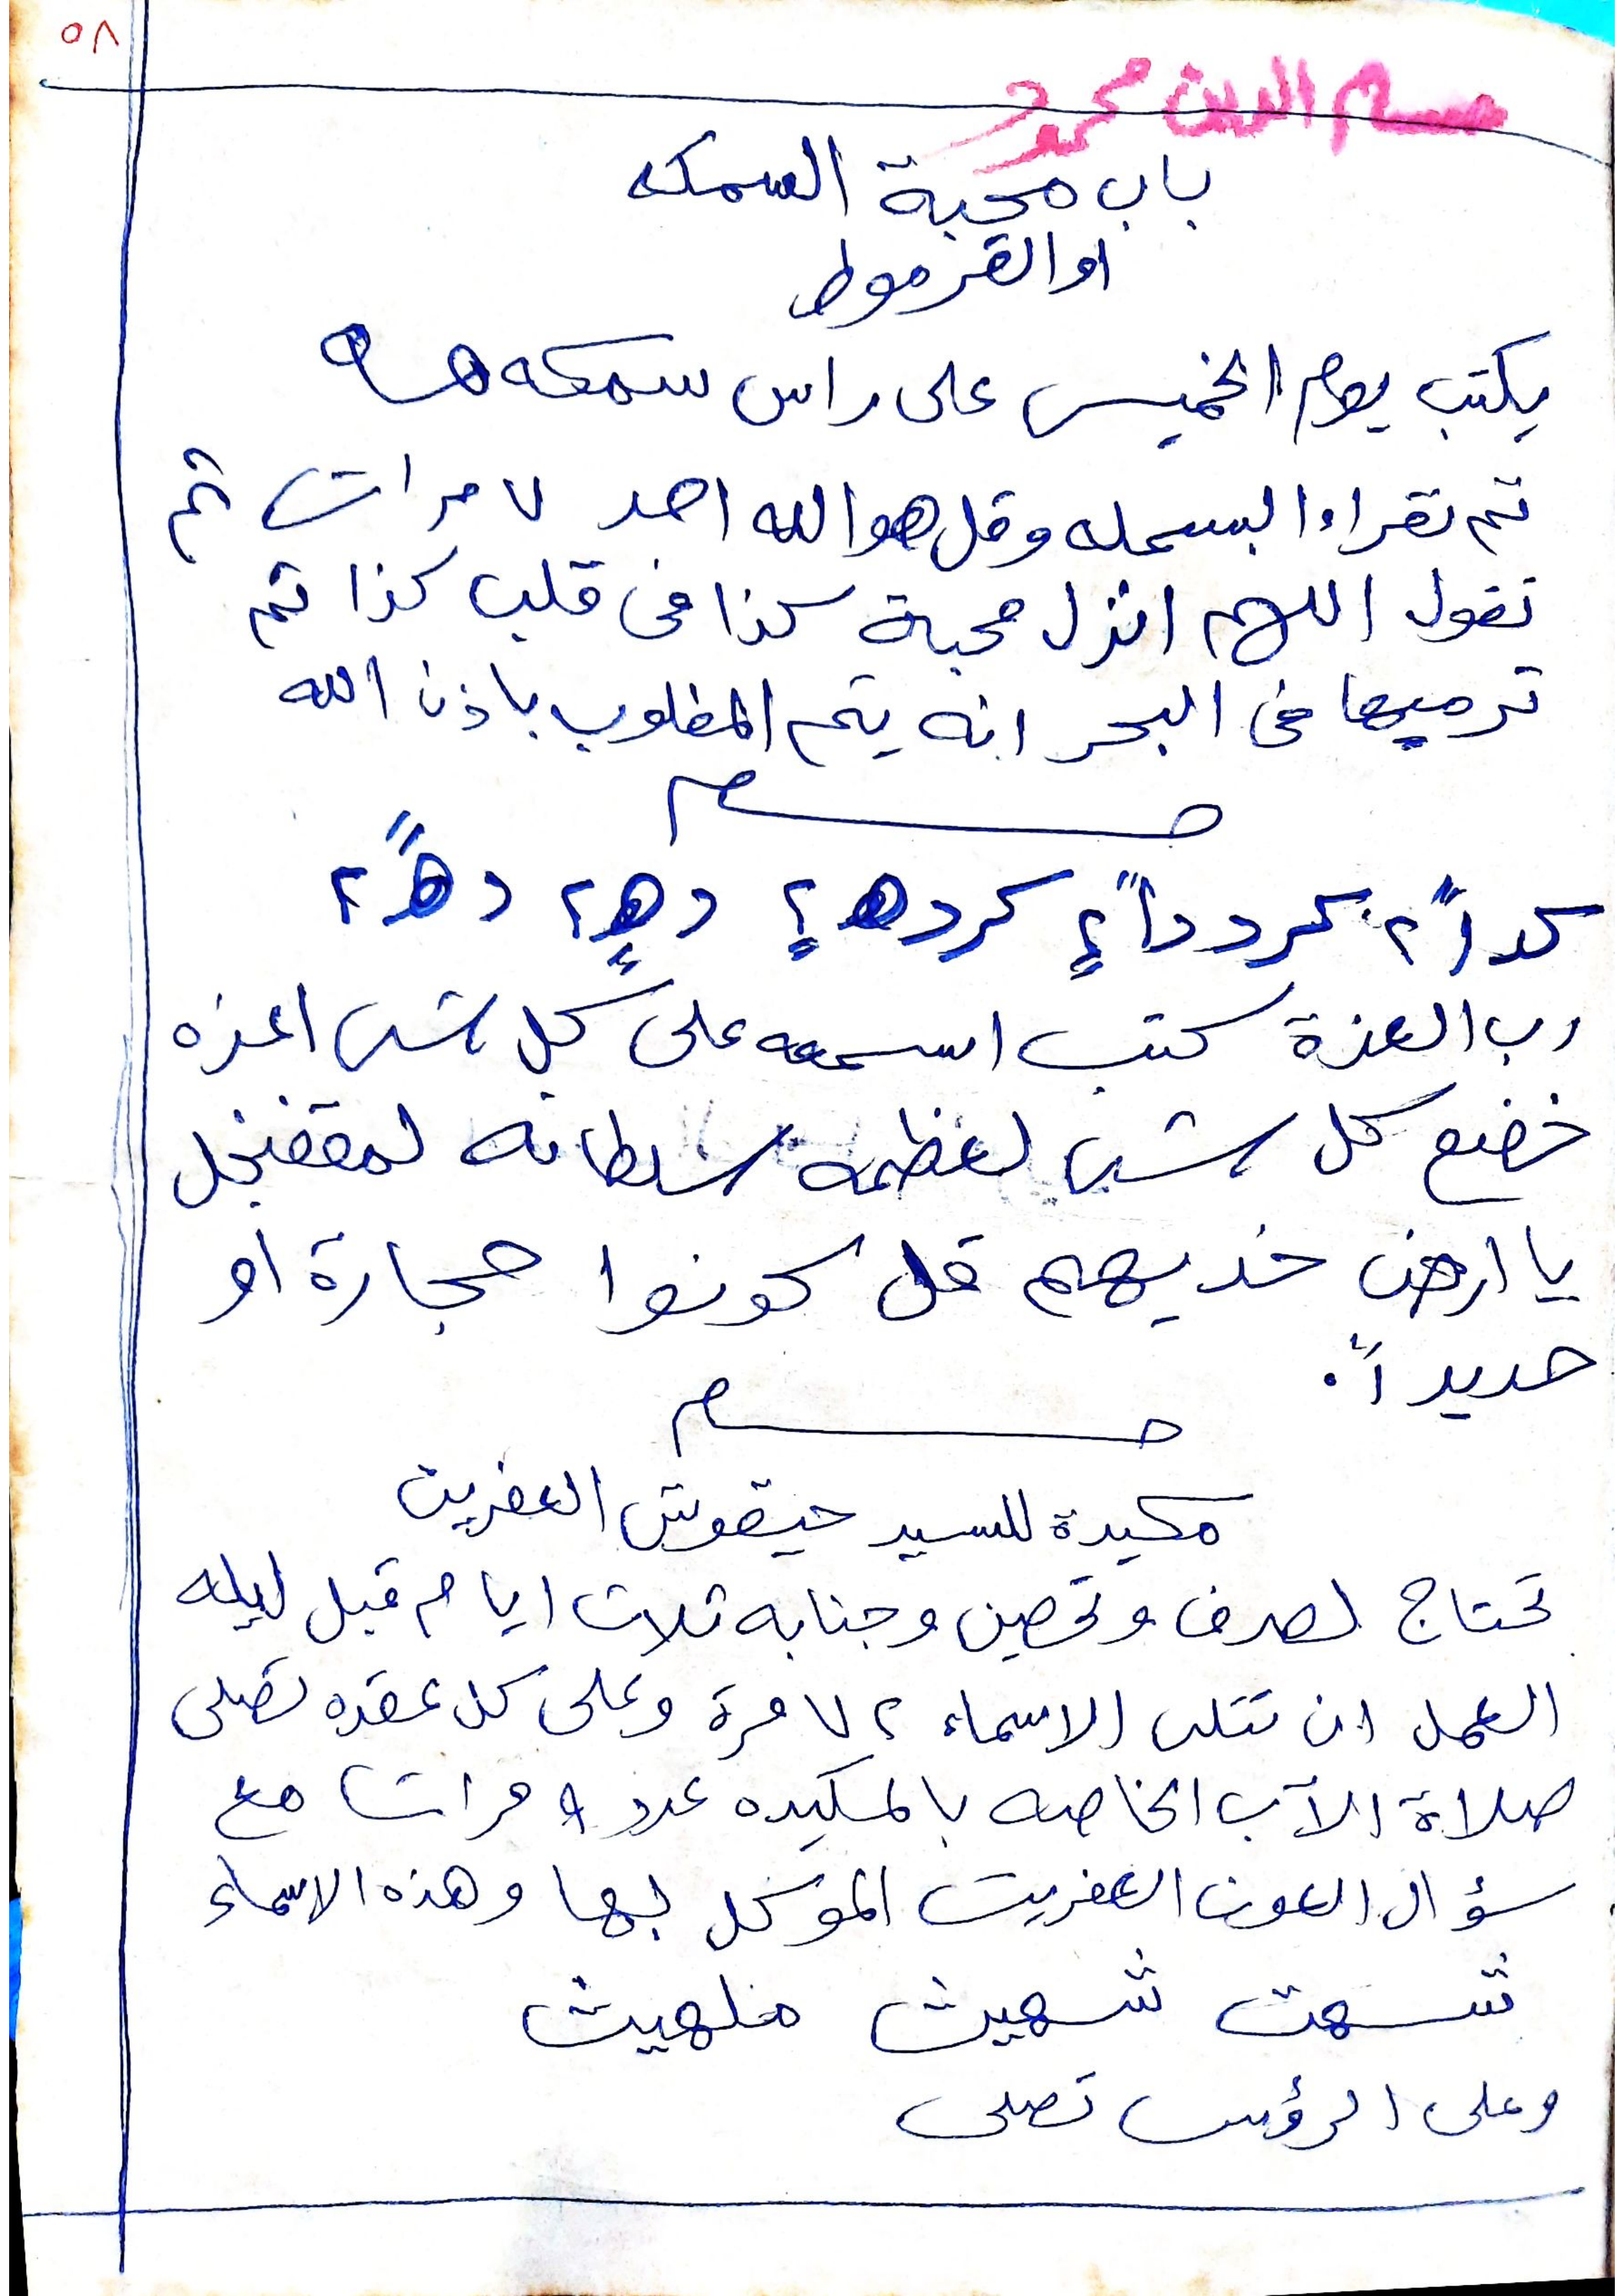 ٥٨
حسام الدين محمود
باب محبة السمكه
او القرموط
يكتب يوم الخميس على راس سمكه
تم تقراء البسمله وقل هو الله احد ٧ مرات ثم
تقول اللهم انزل محبة كذا فى قلب كذا ثم
ترميها فى البحر انه يتم المطلوب باذن الله
حسام
دهٍ ٢ دهاً ٢
رب العزة كتب اسمه على كل شى اعزه
خضع كل شى لعظمه سلطانه
يا ارض خديهم قل كونوا حجارة او
حديداً.
حسام
مكيدة للسيد حيقوش العفريت
تحتاج لصرف وتحصين وجنابه ثلاث ايام قبل ليله
العمل ان تتلى الاسماء ٧٢ مرة وعلى كل عقده تصلى
صلاة الآب الخاصه بالمكيده عدد ٩ مرات مع
سؤال العون العفريت الموكل بها وهذه الاسماء
شهت شهيث
وعلى الرؤس تصلى